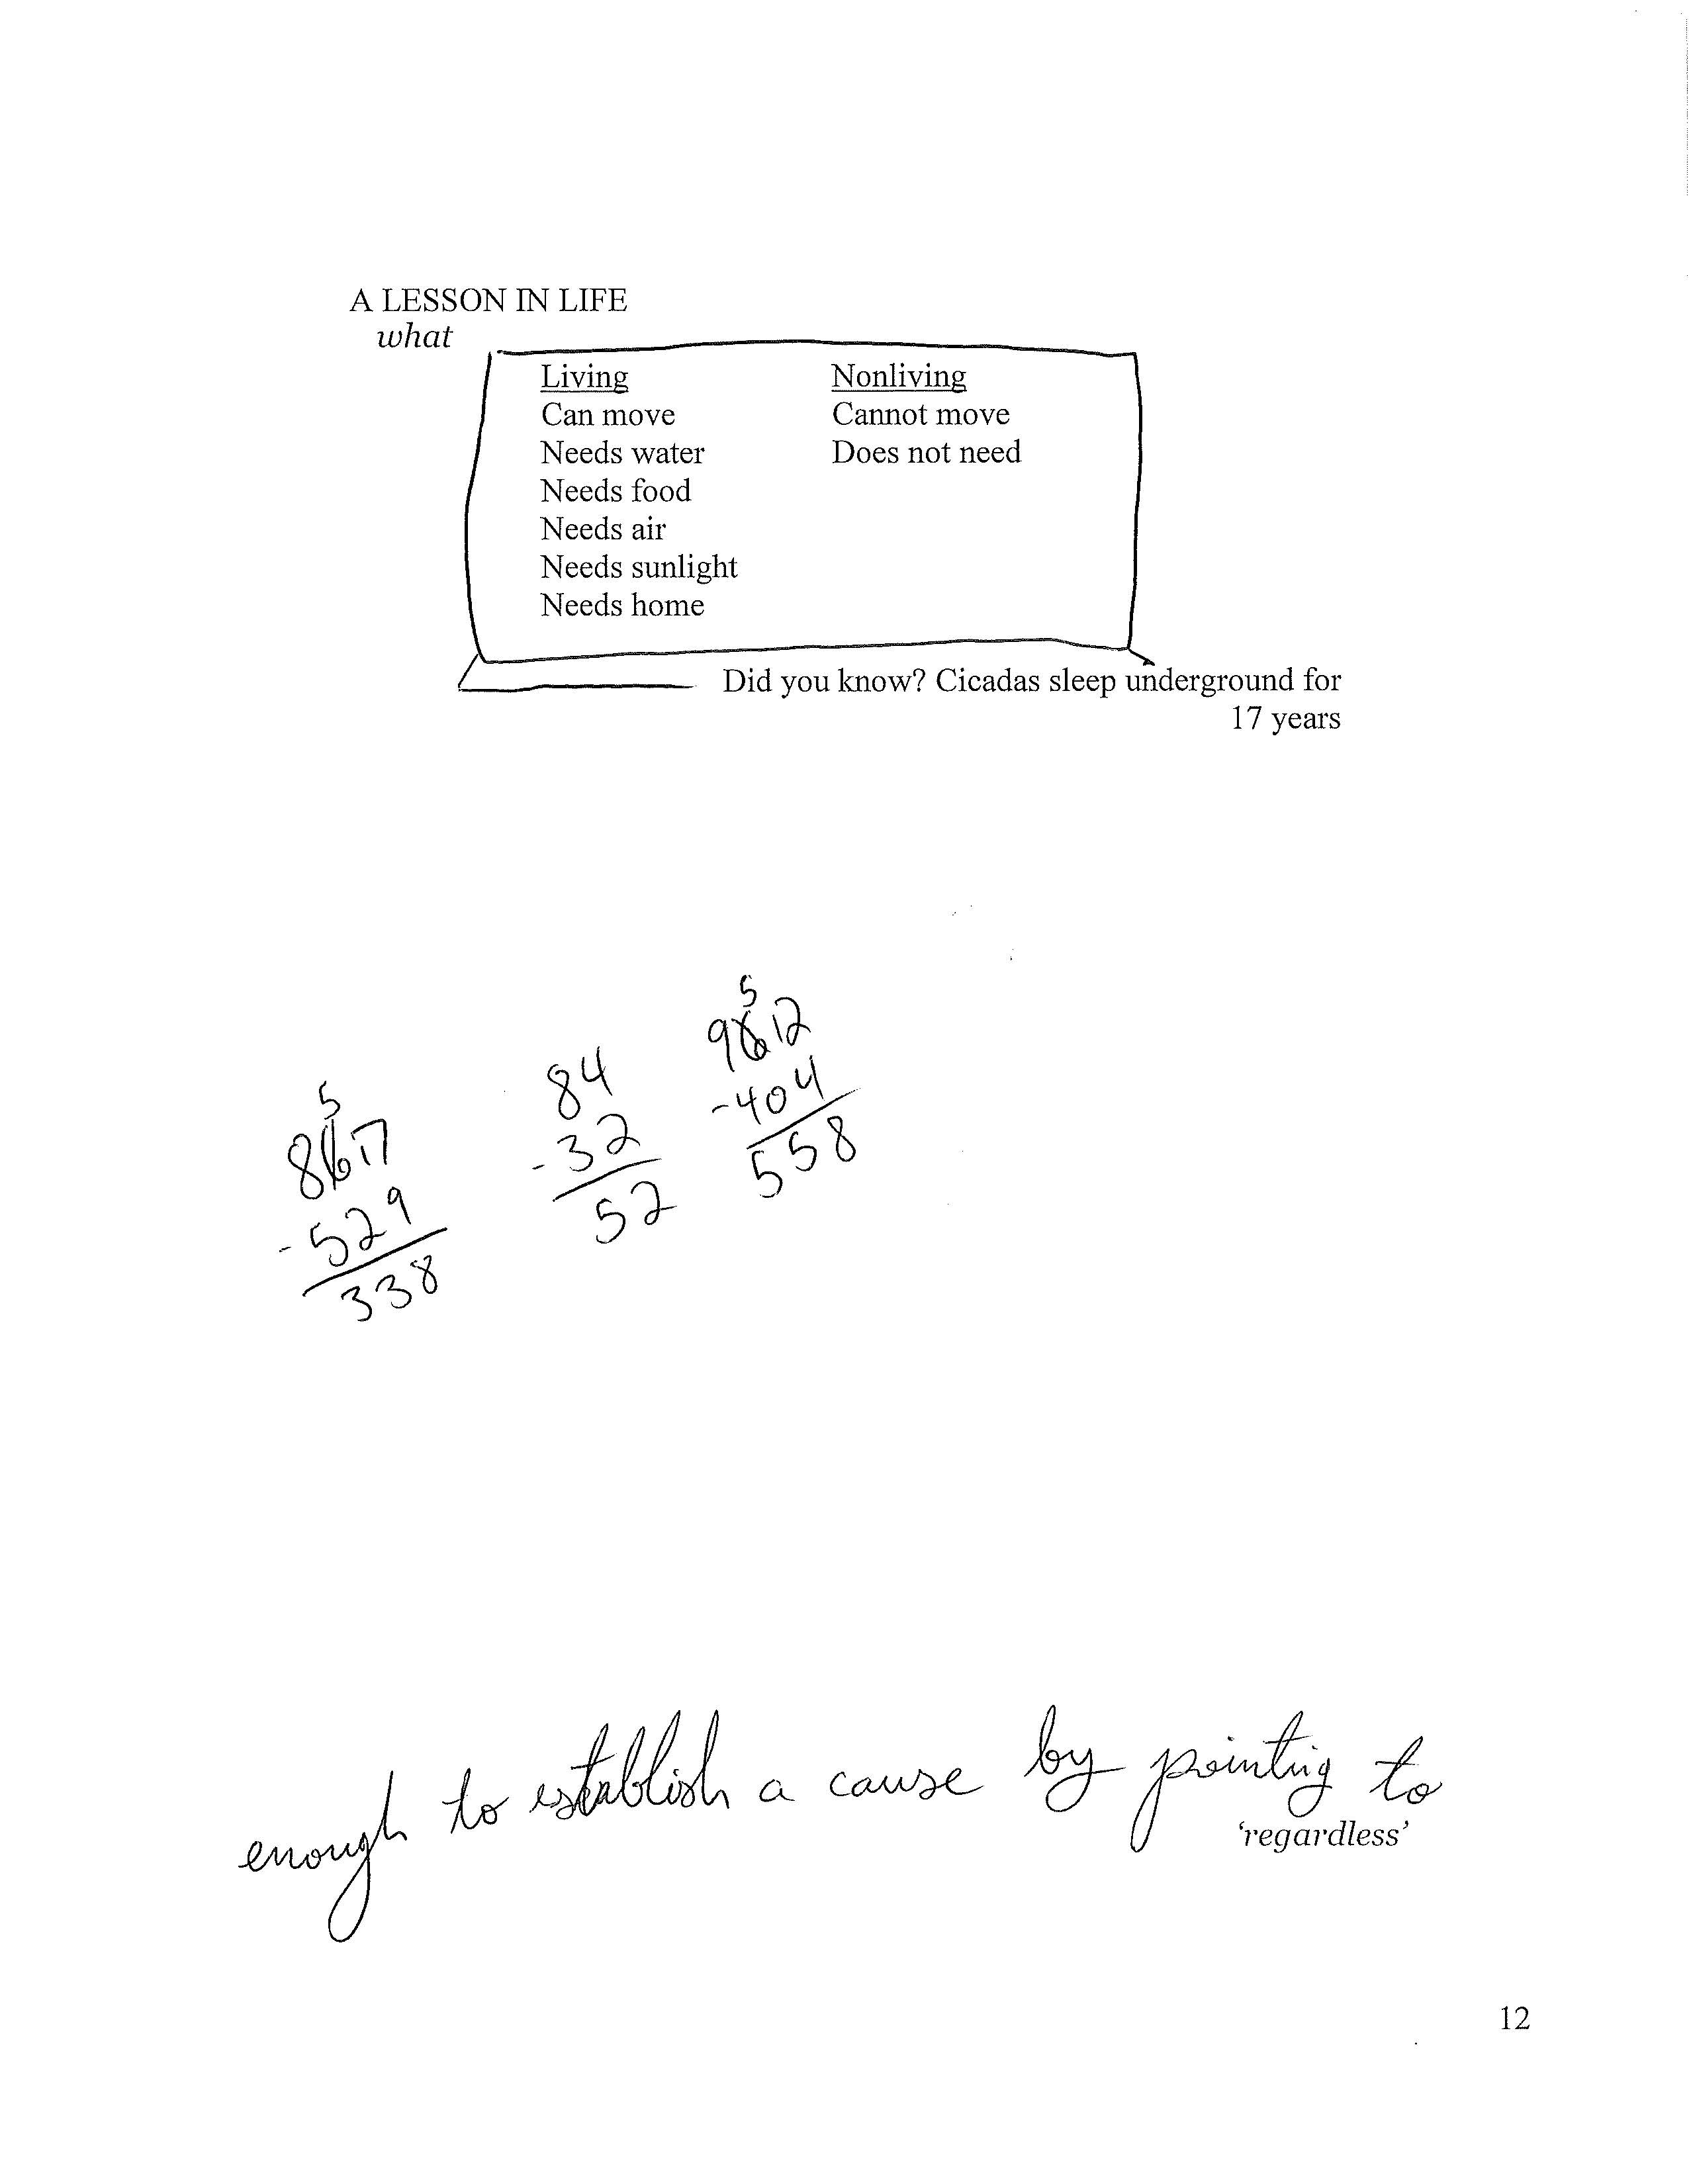 A LESSON IN LIFE
what
Living Nonliving
Can move Cannot move
Needs water Does not need
Needs food
Needs air
Needs sunlight
Needs home
Did you know? Cicadas sleep underground for
17 years
5
8617
-529
338
84
-32
52
5
9612
-404
558
enough to establish a cause by pointing to
‘regardless’
12